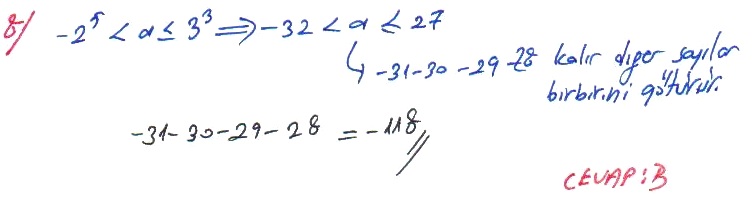 8/ -2⁵ < a ≤ 3³ ⟹ -32 < a ≤ 27
↳ -31-30-29-28 kalır diğer sayılar
birbirini götürür.
-31-30-29-28 = -118//
CEVAP:B